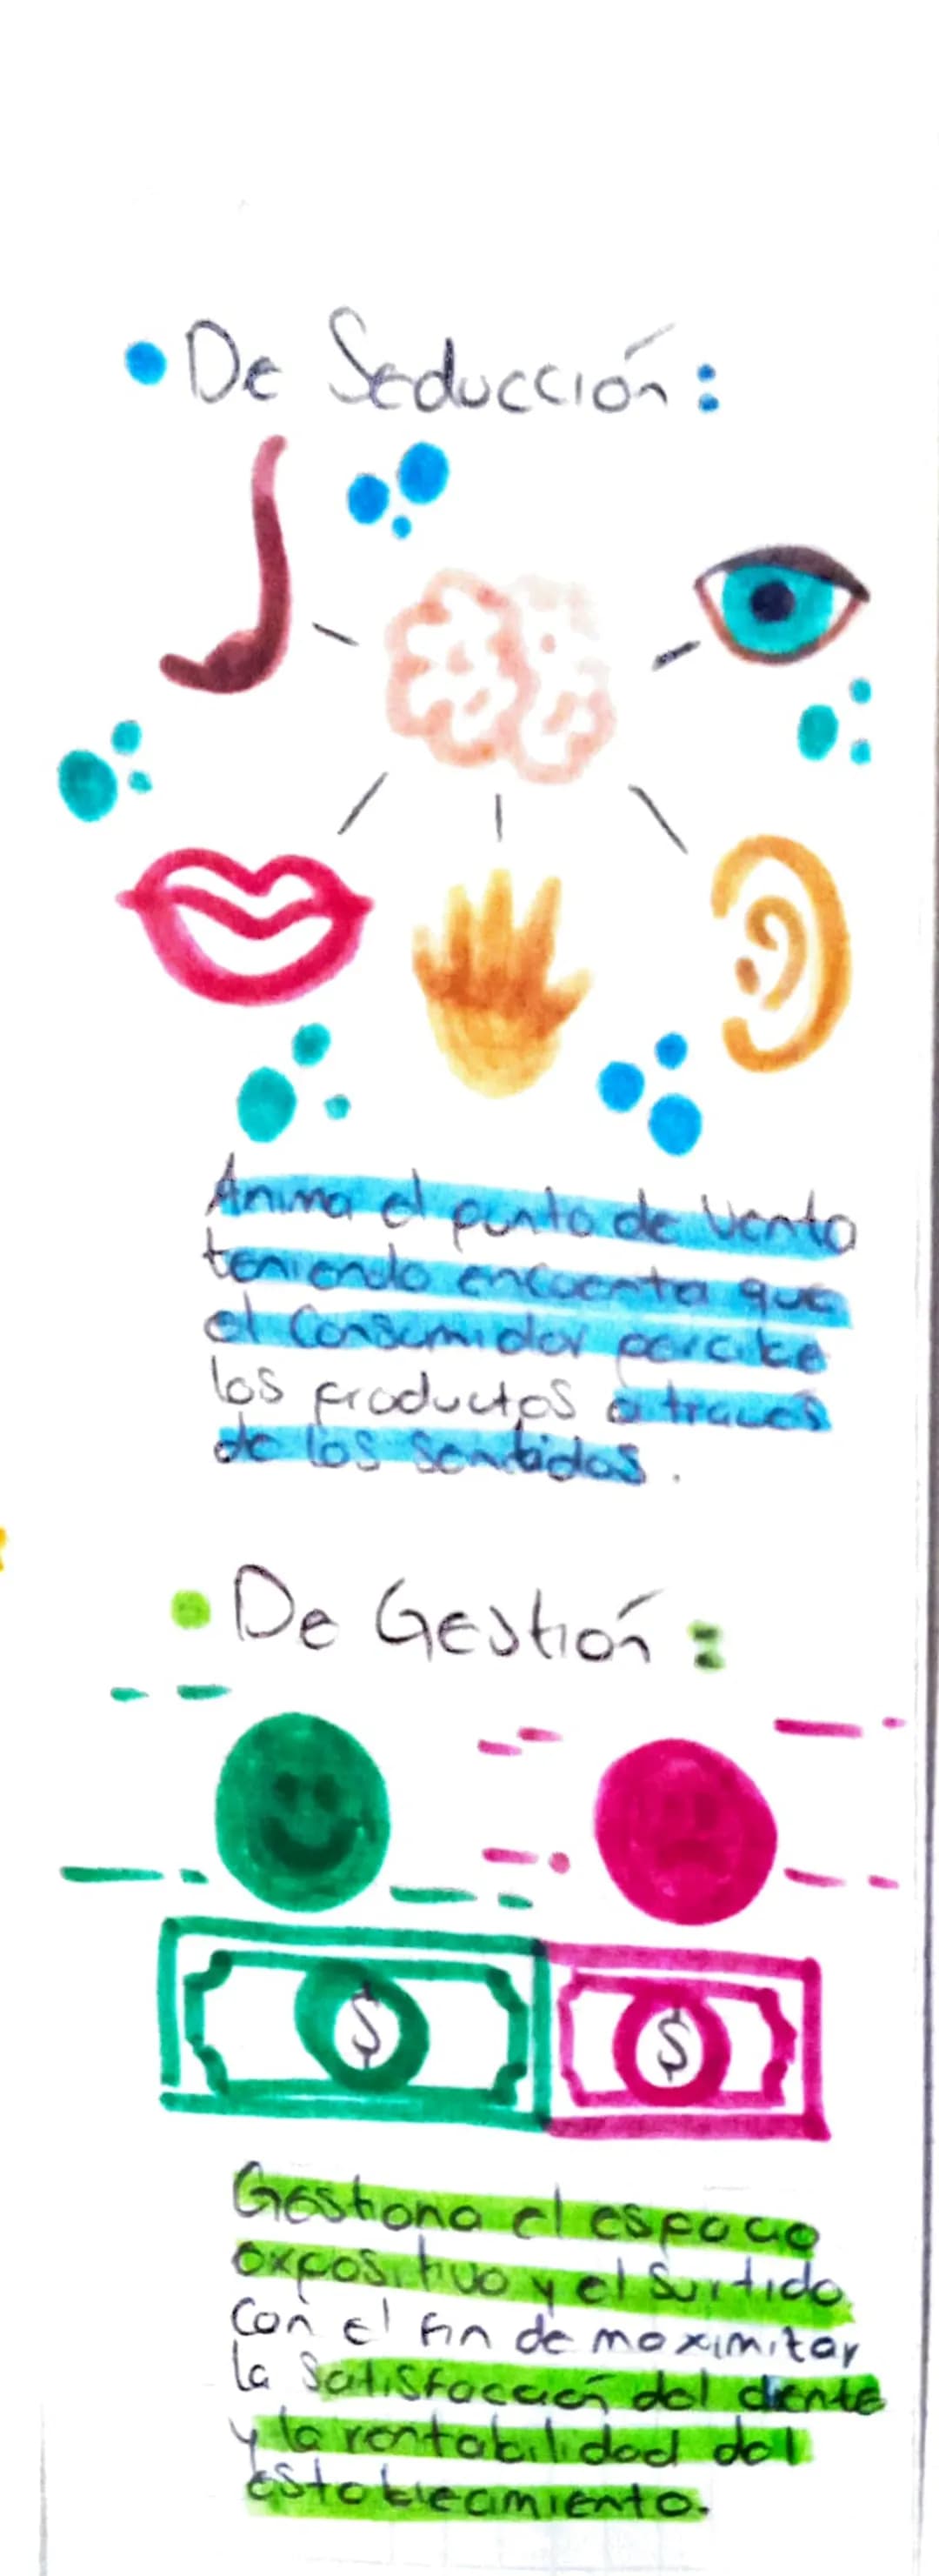 • De Seducción:
Anima el punto de venta
teniendo encuenta que
el Consumidor percibe
los productos a traves
de los sentidos.
• De Gestión:
$ $
Gestiona el espacio
expositivo y el Surtido
con el fin de maximizar
la Satisfacción del cliente
y la rentabilidad del
establecimiento.